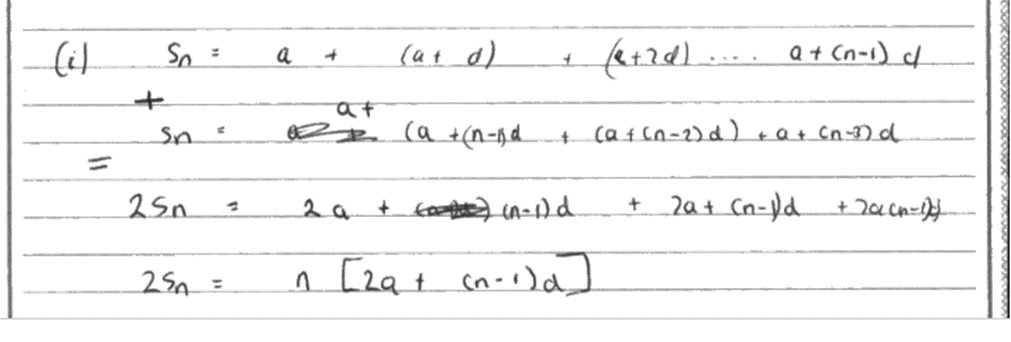 (i) Sn = a + (a + d) + (a+2d) .... a + (n-1) d
+
a+
Sn = (a +(n-1)d + (a + (n-2) d) + a + (n-3) d
=
2Sn = 2a + (n-1) d + 2a + (n-1)d + 2a (n-1)d
2Sn = n [2a + (n-1)d]